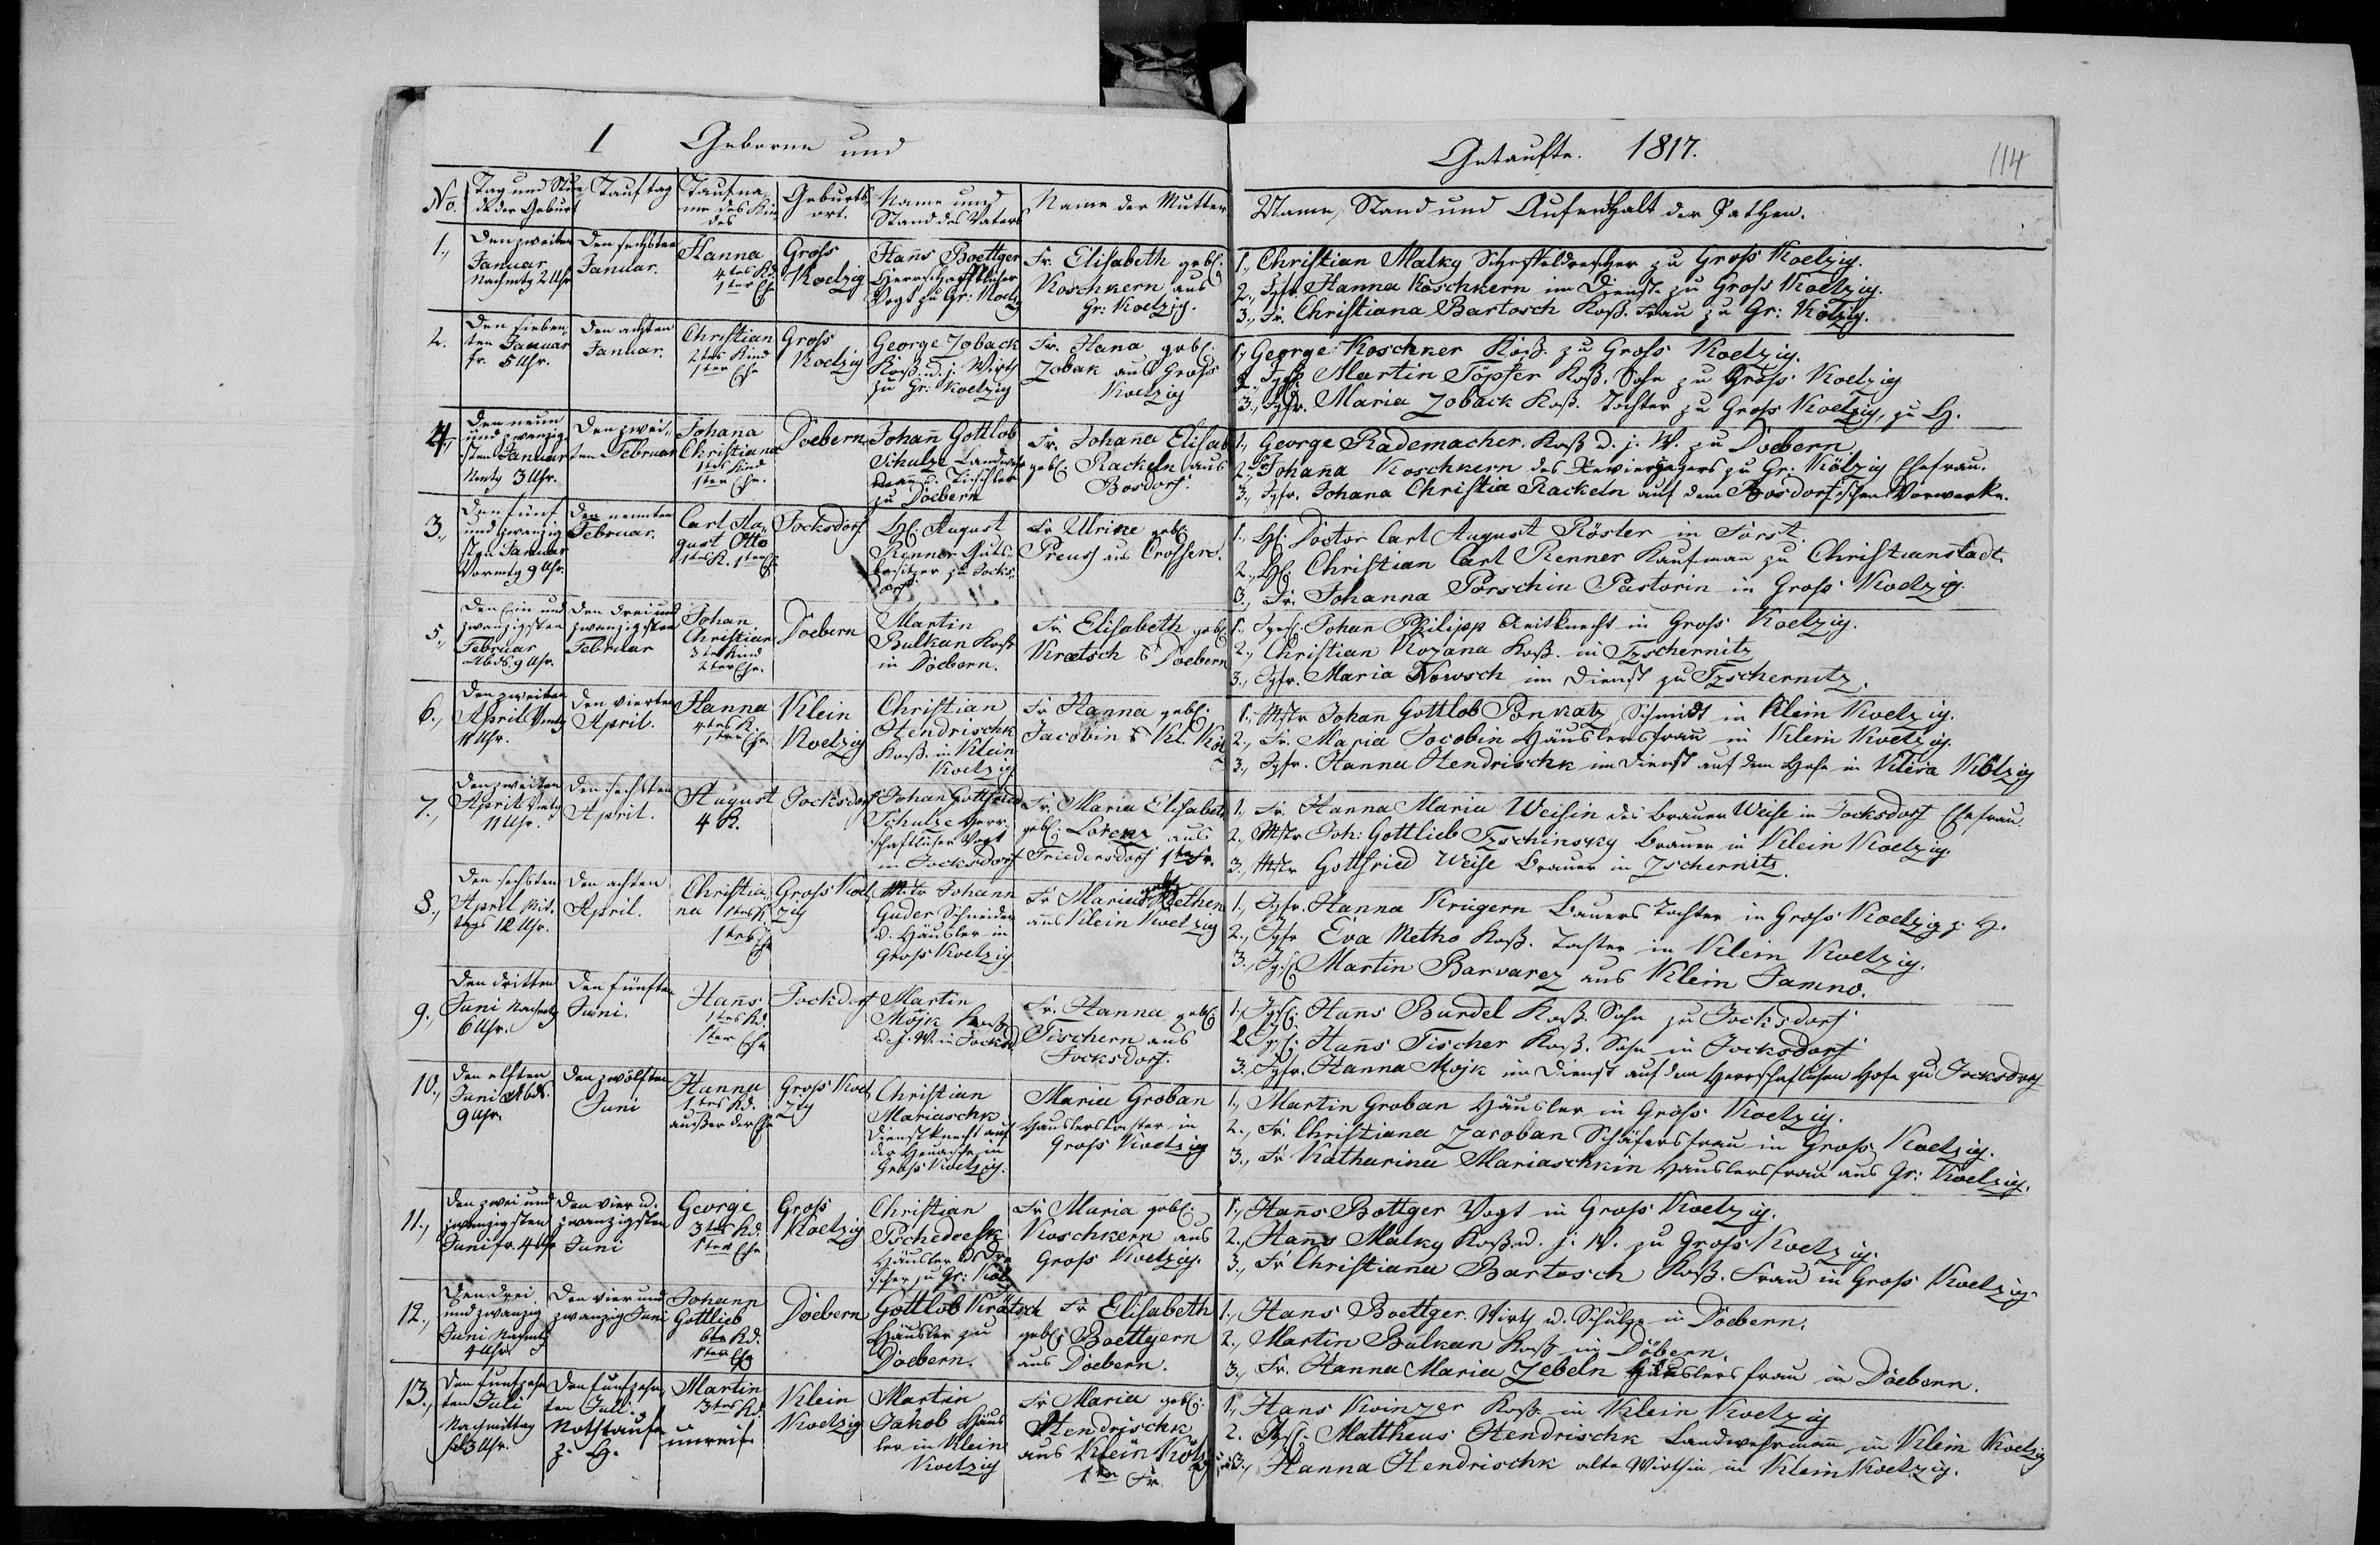 1 Geborne und
Getaufte. 1817.
114
No.
Tag und Stun
de der Geburt
Tauftag
Taufna,
me des Kin
des
Geburts
ort.
Name und
Stand des Vaters
Name der Mutter
Name, Stand und Aufenthalt der Pathen.
1.,
Den zweiten
Januar
Nachmtg 2 Uhr
Den sechsten
Januar.
Hanna
4tes Kd.
1ter Ehe
Gross
Koelzig
Hanns Boettger
Herrschaftlicher
Vogt zu Gr: Koelz
Fr. Elisabeth geb.
Koschkern aus
Gr: Koelzig.
1., Christian Malky Scheffeldrescher zu Gross Koelzig.
2., Jgfr. Hanna Koschkern im Dienst zu Gross Koelzig.
3., Fr. Christiana Bartosch Koss. Frau zu Gr: Kölzig.
2.
Den sieben,
ten Januar
fr. 5 Uhr.
Den achten
Januar.
Christian
2tes Kind
1ter Ehe
Gross
Koelzig
George Zoback
Koss. u. j. Wirth
zu Gr: Koelzig
Fr. Hana geb.
Zobak aus Gross
Koelzig
1., George Koschker Koss. zu Gross Koelzig.
2., Jgs. Martin Töpfer Koss. Sohn zu Gross Koelzig
3., Jgfr. Maria Zoback Koss. Tochter zu Gross Koelzig, z. H.
4.,
Den neun
und zwanzig
sten Januar
Nmtg 3 Uhr.
Den zwei,
ten Februar
Johana
Christiana
1tes Kind
1ter Ehe.
Doebern
Johann Gottlob
Schulze Landwehr
mann u. Tischler
zu Doebern
Fr. Johana Elisab
geb. Rackeln aus
Bosdorf
1., George Rademacher. Koss. u. j. W. zu Doebern
2., Fr Johana Koschkern des Revierjägers zu Gr: Kölzig Ehefrau.
3., Jgfr. Johana Christia Rackeln auf dem Bosdorfschen Vorwerke.
3.,
Den fünf
und zwanzig
sten Januar
Vormtg 9 Uhr.
Den neunten
Februar.
Carl Au,
gust Otto
1tes K. 1ter Ehe
Jocksdorf
H. August
Renner Guts,
besitzer zu Jocks,
dorf
Fr Ulrike geb.
Preuss aus Crossen.
1., H. Doctor Carl August Röster in Forst.
2., H. Christian Carl Renner Kaufmann zu Christianstadt.
3., Fr. Johanna Porschin Pastorin in Gross Koelzig.
5.,
Den Ein und
zwanzigsten
Februar
Abds. 9 Uhr.
Den drei und
zwanzigsten
Februar
Johan
Christian
3tes Kind
2ter Ehe.
Doebern
Martin
Bulkan Koss
in Doebern.
Fr. Elisabeth geb.
Kraetsch Doebern
1., Jgs. Johann Philipp Reitknecht in Gross Koelzig.
2., Christian Kozana Koss. in Tzschernitz
3., Jgfr. Maria Nowsch im Dienst zu Tzschernitz.
6.,
Den zweiten
April Vmtg
11 Uhr.
Den vierten
April.
Hanna
4tes K.
1ter Ehe
Klein
Koelzig
Christian
Hendrischk
Koss. in Klein
Koelzig
Fr Hanna geb.
Jacobin Kl. Köl
1., Mstr Johann Gottlob Ponkatz Schmidt in Klein Koelzig.
2., Fr. Maria Jocobin Häuslersfrau in Klein Koelzig.
3., Jgfr. Hanna Hendrischk im Dienst auf dem Hofe in Klein Kölzig
7.,
Den zweiten
April Vmtg
11 Uhr.
Den sechsten
April.
August
4 K.
Jocksdorf
Johan Gottfried
Schulze Herr,
schaftlicher Vogt
in Jocksdorf
Fr. Maria Elisabeth
geb. Lorenz aus
Friedersdorf 1ter Fr.
1., Fr. Hanna Maria Weisin des Brauer Weise in Jocksdorf Ehefrau.
2. Mstr Joh: Gottlieb Tzschinsky Brauer in Klein Koelzig.
3., Mstr Gottfried Weise Brauer in Zschernitz.
8.,
Den sechsten
April Mit,
tags 12 Uhr.
Den achten
April.
Christia,
na 1tes K.
1ter Ehe
Gross Koel
zig
Mstr Johann
Guder Schneider
u. Häusler in
Gross Koelzig
Fr Maria geb. Methen
aus Klein Koelzig
1., Jgfr. Hanna Krügern Bauers Tochter in Gross Koelzig z. H.
2., Jgfr Eva Metho Koss. Tochter in Klein Koelzig.
3., Jgs Martin Barvarez aus Klein Jamno.
9.,
Den dritten
Juni Nachmtg
6 Uhr.
Den fünften
Juni.
Hanns
1tes Kd.
1ter Ehe
Jockdorf
Martin
Mojk Koss
u. j. W. in Jocksd.
Fr. Hanna geb.
Tischern aus
Jocksdorf.
1., Jgs. Hans Burdel Koss. Sohn zu Jocksdorf
2. Jgs. Hanns Tischer Koss. Sohn in Jocksdorf
3. Jgfr. Hanna Mojk im Dienst auf dem Herrschaftlichen Hofe zu Jocksdorf
10.,
Den elften
Juni Abds.
9 Uhr.
Den zwölften
Juni
Hanna
1tes Kd.
ausser der Ehe
Gross Koel
zig
Christian
Mariaschk
Dienstknecht auf
der in
Gross Koelzig.
Maria Groban
Häuslerstochter in
Gross Koelzig
1., Martin Groban Häusler in Gross Koelzig.
2., Fr. Christiana Zacoban Schäfersfrau in Gross Koelzig.
3., Fr Katharina Mariaschkin Häuslersfrau aus Gr: Koelzig.
11.,
Den zwei und
zwanzigsten
Juni fr. 4 Uhr
Den vier u.
zwanzigsten
Juni
George
3tes Kd.
1ter Ehe
Gross
Koelzig
Christian
Pschedeesk
Häusler u Dre
scher zu Gr: Köl
Fr Maria geb.
Koschkern aus
Gross Koelzig.
1., Hanns Bottger Vogt in Gross Koelzig.
2., Hanns Malky Koss. u. j. W. zu Gross Koelzig.
3., Fr Christiana Bartosch Koss. Frau in Gross Koelzig.
12.,
Den drei
und zwanzig
Juni Nachmtg
4 Uhr
Den vier und
zwanzig Juni
Johann
Gottlieb
6tes Kd.
1ter Ehe
Doebern
Gottlob Krätsch
Häusler zu
Doebern.
Fr Elisabeth
geb. Boettgern
aus Doebern.
1., Hans Boettger. Wirth u. Schulze in Doebern.
2., Martin Bulkan Koss in Döbern.
3., Fr. Hanna Maria Zebeln Häuslersfrau in Doebern.
13.,
Den funfzehn
ten Juli
Nachmittag
3 Uhr.
Den funfzehn,
ten Juli
Nothtaufe
z. H.
Martin
3tes Kd.
unreif
Klein
Koelzig
Martin
Jakob Häus
ler in Klein
Koelzig
Fr Maria geb.
Hendrischk
aus Klein Kölzig
1ter Fr.
1., Hans Koinzer Koss. in Klein Koelzig
2. Jgs. Mattheus Hendrischk Landwehrmann in Klein Koelzig
3., Hanna Hendrischk alte Wirthin in Klein Koelzig.